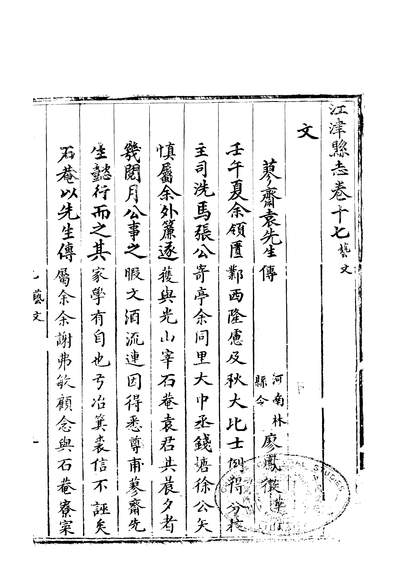 江津縣志卷十七 藝文
文
蓼齋袁先生傳
河南林縣令 廖鳳徵
壬午夏余領匱鄴西隆慮及秋大比士例得分校
主司洗馬張公寄亭余同里大中丞錢塘徐公矢
慎屬余外簾逐獲與光山宰石菴袁君共晨夕者
幾閱月公事之暇文酒流連因得悉尊甫蓼齋先
生懿行而之其家學有自也弓冶箕裘信不誣矣
石菴以先生傳屬余余謝弗敏顧念與石菴寮寀
藝文